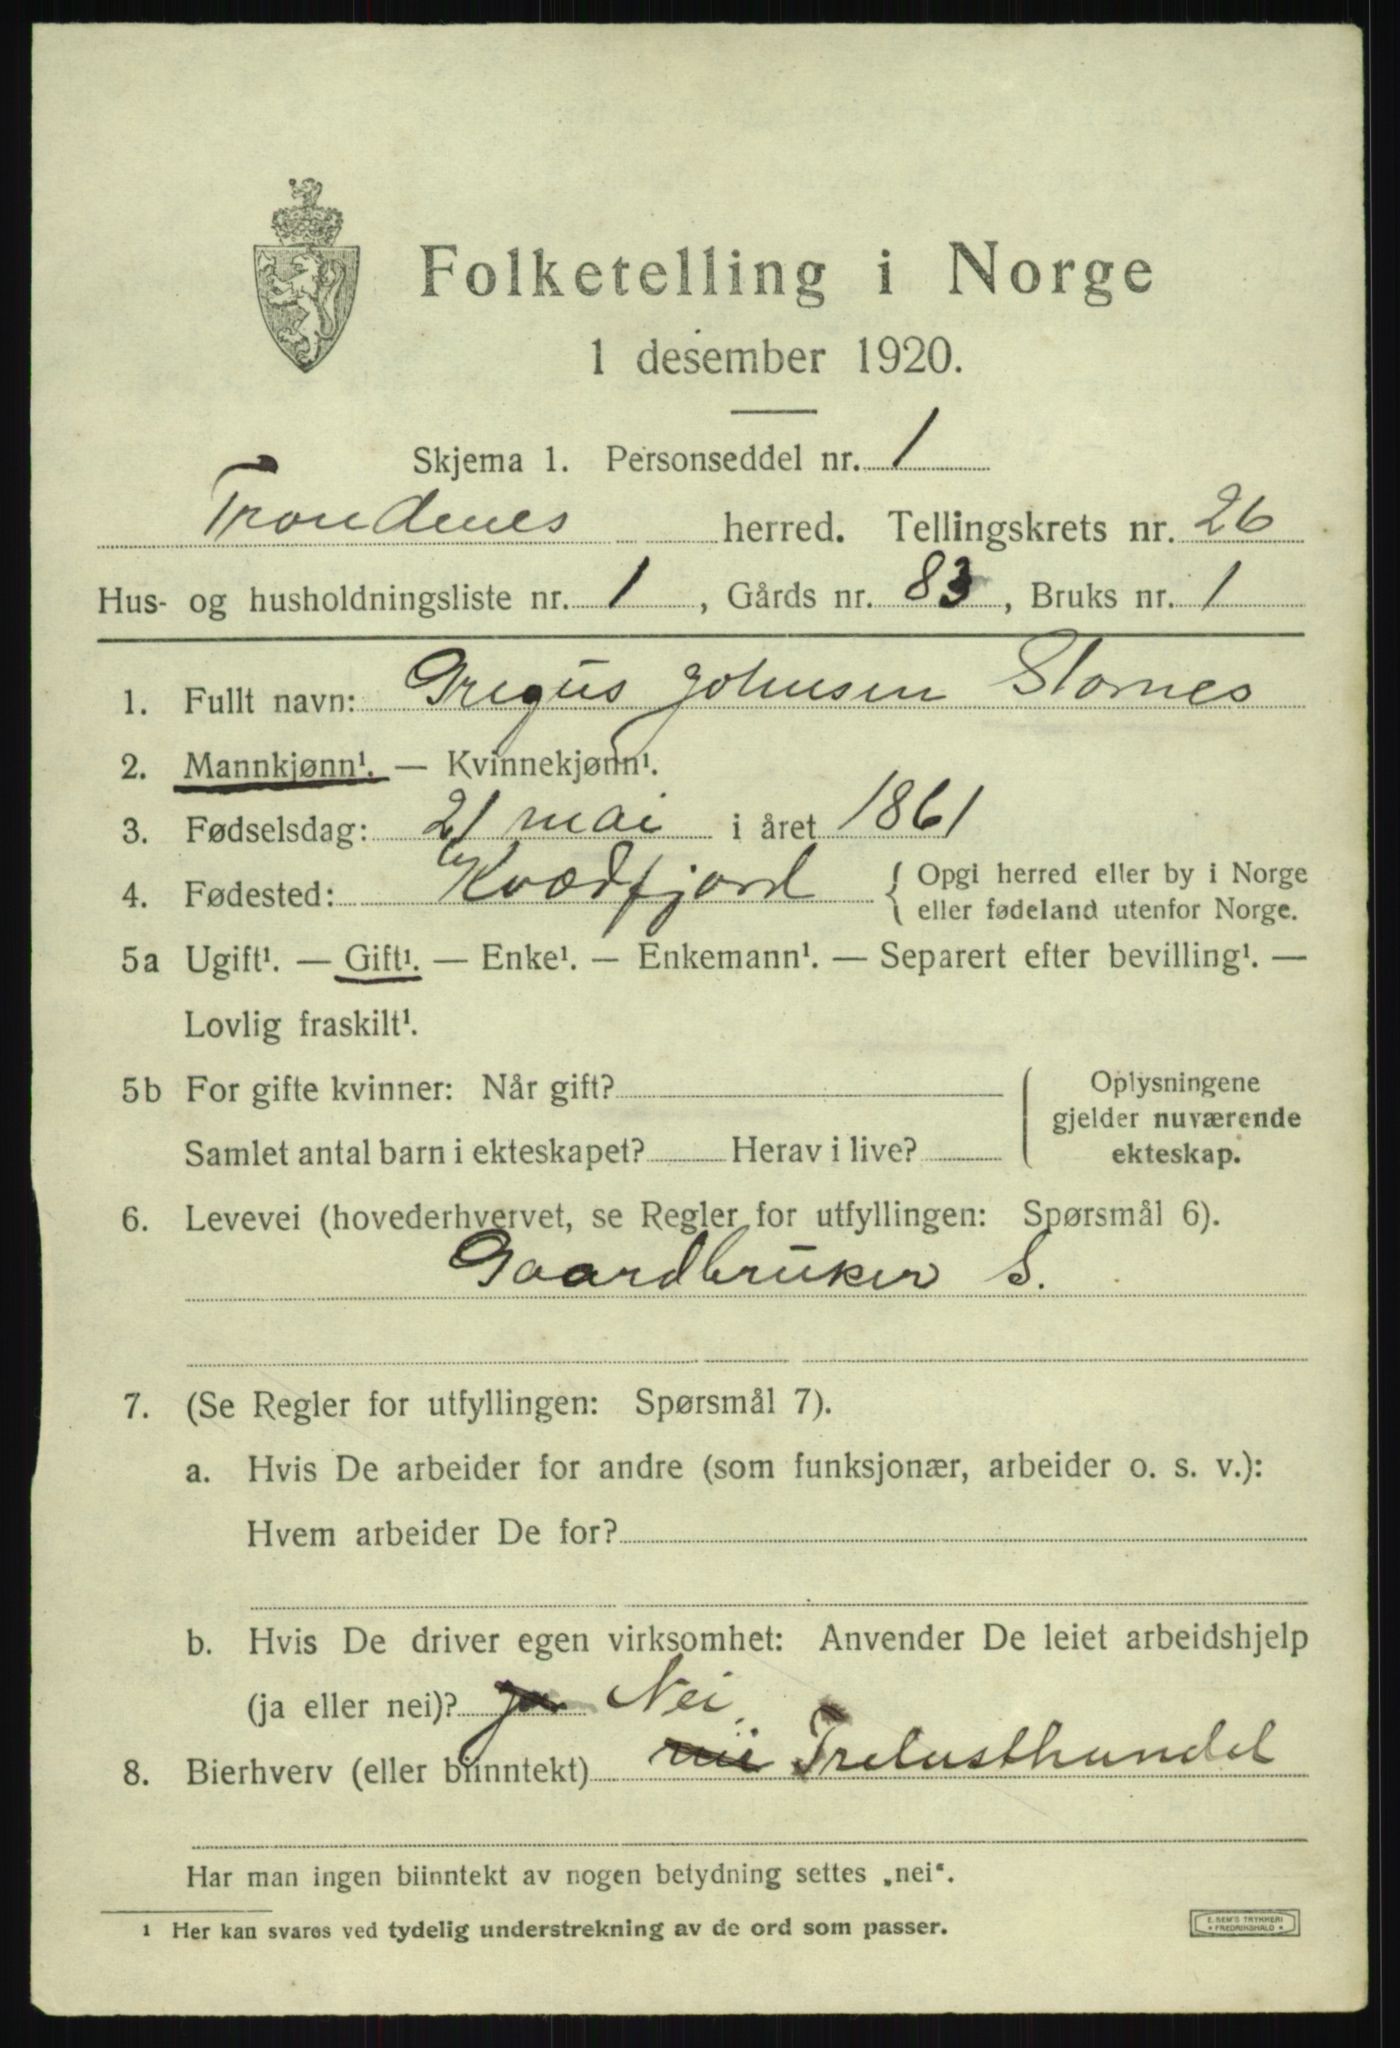 Folketelling i Norge
1 desember 1920.
Skjema 1. Personseddel nr. 1
Trondenes herred. Tellingskrets nr. 26
Hus- og husholdningsliste nr. 1, Gårds nr. 83, Bruks nr. 1
1. Fullt navn: Gregus Johnsen Stornes
2. Mannkjønn¹. — Kvinnekjønn¹.
3. Fødselsdag: 21 mai i året 1861
4. Fødested: Kvædfjord { Opgi herred eller by i Norge
eller fødeland utenfor Norge.
5a Ugift¹. — Gift¹. — Enke¹. — Enkemann¹. — Separert efter bevilling¹. —
Lovlig fraskilt¹.
5b For gifte kvinner: Når gift?
Samlet antal barn i ekteskapet? Herav i live?
Oplysningene
gjelder nuværende
ekteskap.
6. Levevei (hovederhvervet, se Regler for utfyllingen: Spørsmål 6).
Gaardbruker S.
7. (Se Regler for utfyllingen: Spørsmål 7).
a. Hvis De arbeider for andre (som funksjonær, arbeider o. s. v.):
Hvem arbeider De for?
b. Hvis De driver egen virksomhet: Anvender De leiet arbeidshjelp
(ja eller nei)? ja Nei
8. Bierhverv (eller biinntekt) nei Trelasthandel
Har man ingen biinntekt av nogen betydning settes „nei“.
¹ Her kan svares ved tydelig understrekning av de ord som passer.
E. SEM'S TRYKKERI
* FREDRIKSHALD *